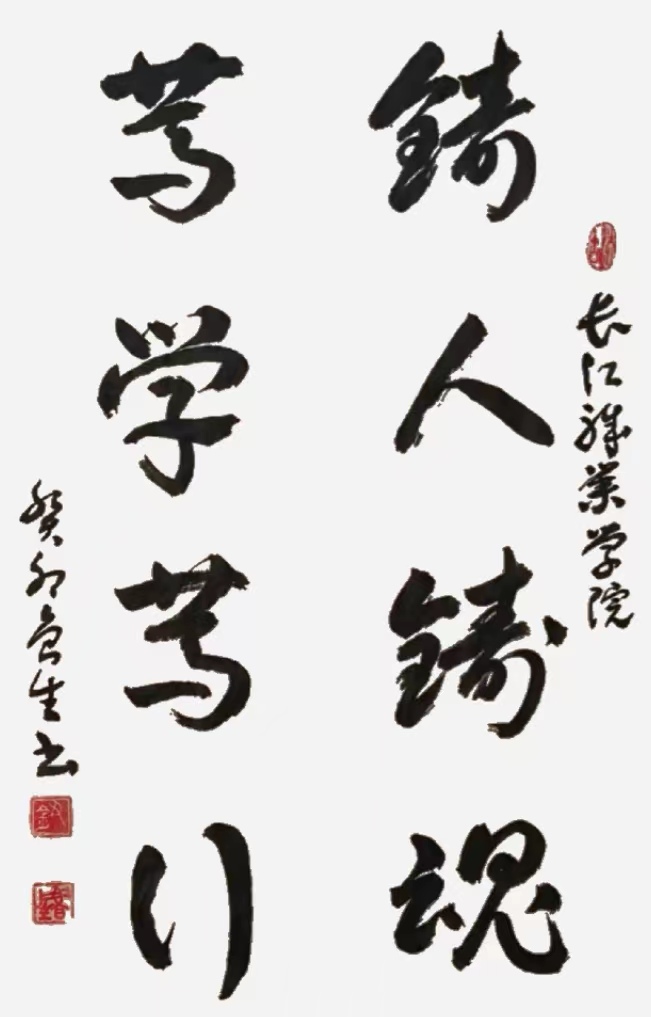 长江职业学院
铸人铸魂
笃学笃行
癸卯 生书